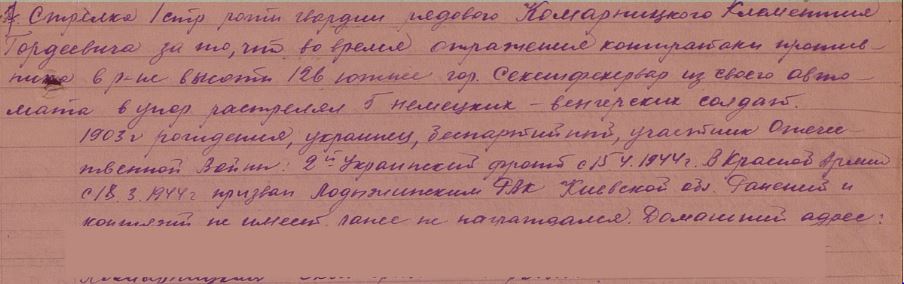 7. Стрелка 1 стр роты гвардии рядового Комарницкого Клементия
Гордеевича за то, что во время отражения контратаки против-
ника в р-не высоты 126 южнее гор. Секешфехервар из своего авто-
мата в упор расстрелял 5 немецких - венгерских солдат.
1903 г рождения, украинец, беспартийный, участник Отече-
ственной Войны: 2й Украинский фронт с 15.4.1944 г. В Красной Армии
с 18.3.1944 г призван РВК Киевской обл. Ранений и
контузий не имеет ранее не награждался. Домашний адрес: